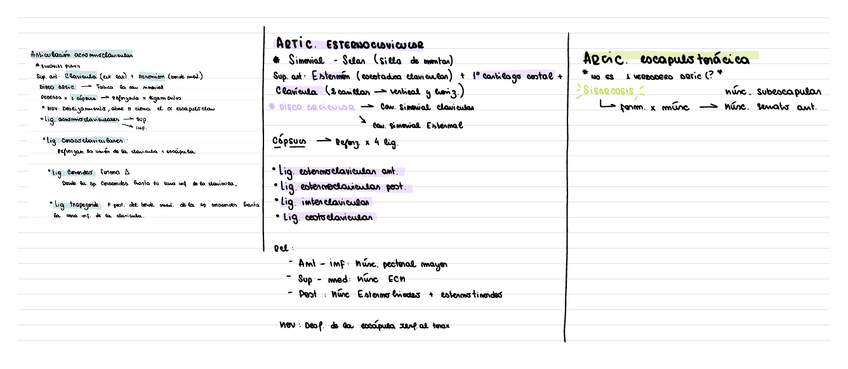 Articulación acromioclavicular
* SINOVIAL PLANA
Sup. art: Clavícula (ext lat) + Acromion (borde med.)
DISCO ARTIC. → Tabica la cav sinovial
Rodeados x 1 cápsula → Reforzada x ligamentos
* MOV: Deslizamiento, abre o cierra el escapuloclav
• Lig. acromioclaviculares → Sup.
→ Inf.
• Lig. coracoclaviculares:
Refuerzan la unión de la clavícula + escápula
• Lig. conoides Forma Δ
Desde la ap. coracoides hasta la cara inf de la clavícula.
• Lig. trapezoide + post. del borde med. de la ap coracoides hasta
la cara inf. de la clavícula.
ARTIC. ESTERNOCLAVICULAR
* Sinovial - Selar (silla de montar)
Sup. art: Esternón (escotadura clavicular) + 1º cartílago costal +
Clavícula (2 carillas → vertical y horiz.)
* DISCO ARTICULAR → Cav. sinovial clavicular
↘ Cav. sinovial Esternal
Cápsula → Reforz. x 4 lig.
• Lig. esternoclavicular ant.
• Lig. esternoclavicular post.
• Lig. interclavicular
• Lig. costoclavicular
Rel:
- Ant - inf: Músc. pectoral mayor
- Sup - med: Músc ECM
- Post: Músc Esternohioideo + esternotiroideo
MOV: Desp. de la escápula resp al tórax
ARTIC. escapulotorácica
* NO ES 1 VERDADERA artic (? *
SISARCOSIS
músc. subescapular
↳ form. x músc → músc. serrato ant.